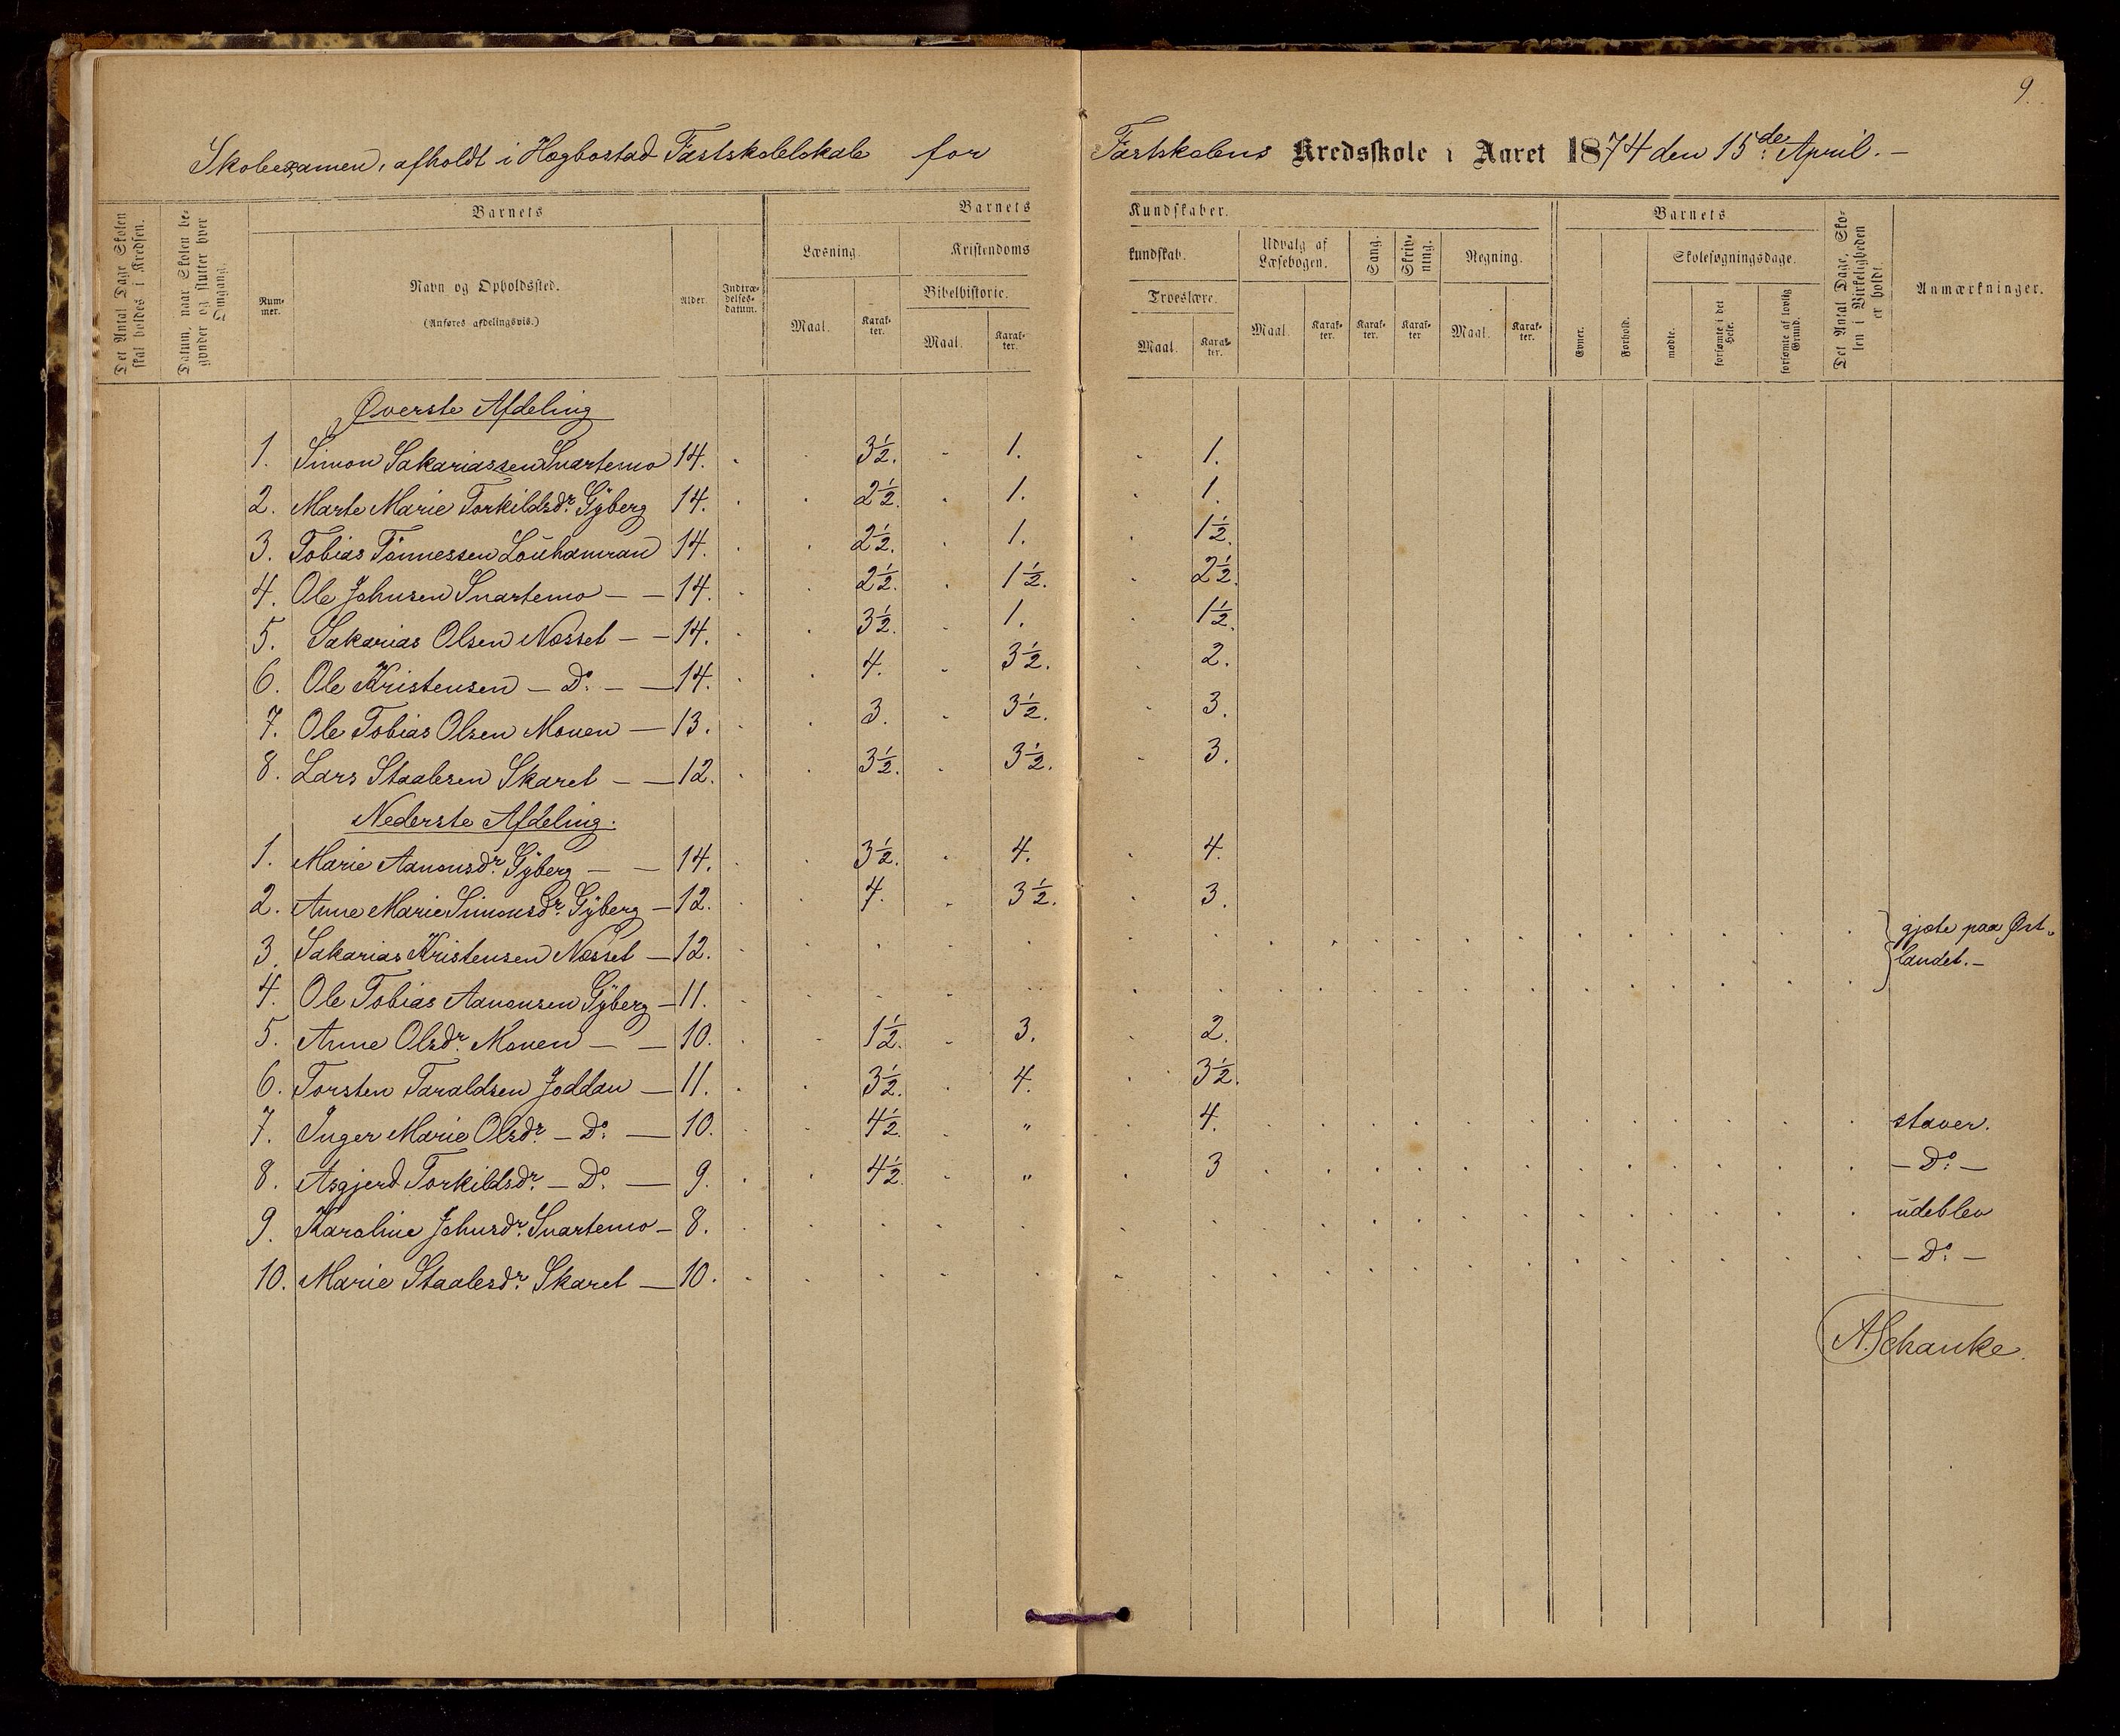 9.
Skoleexamen, afholdt i Hægbostad Fastskolelokale for Fastskolens Kredsskole i Aaret 1874 den 15de April. —
Det Antal Dage Skolen skal holdes i Kredsen.
Datum, naar Skolen begynder og slutter hver Omgang.
Barnets
Num-mer.
Navn og Opholdssted.
(Anføres afdelingsvis.)
Alder.
Indtræ-delses-datum.
Barnets Kundskaber.
Læsning.
Maal.
Karak-ter.
Kristendomskundskab.
Bibelhistorie.
Maal.
Karak-ter.
Troeslære.
Maal.
Karak-ter.
Udvalg af Læsebogen.
Maal.
Karak-ter.
Sang.
Karak-ter.
Skriv-ning.
Karak-ter
Regning.
Maal.
Karak-ter.
Barnets
Evner.
Forhold.
Skolesøgningsdage.
mødte.
forsømte i det Hele.
forsømte af lovlig Grund.
Det Antal Dage, Sko-len i Virkeligheden er holdt.
Anmærkninger.
Øverste Afdeling
1. Simon Sakariassen Snartemo 14. 3½. 1. 1.
2. Marte Marie Torkildsdr. Gÿberg 14. 2½. 1. 1.
3. Tobias Tönnessen Louhamran 14. 2½. 1. 1½.
4. Ole Johnsen Snartemo — — 14. 2½. 1½. 2½.
5. Sakarias Olsen Nøsset — — 14. 3½. 1. 1½.
6. Ole Kristensen — Do. — — 14. 4. 3½. 2.
7. Ole Tobias Olsen Monen — 13. 3. 3½. 3.
8. Lars Staalesen Skaret — — 12. 3½. 3½. 3.
Nederste Afdeling.
1. Marie Aanonsdr. Gÿberg — — 14. 3½. 4. 4.
2. Anne Marie Simonsdr. Gÿberg — 12. 4. 3½. 3.
3. Sakarias Kristensen Nøsset — 12. gjæte paa Øst-
4. Ole Tobias Aanonsen Gÿberg — 11. landet. —
5. Anne Olsdr. Monen — — 10. 1½. 3. 2.
6. Torsten Taraldsen Joddan — 11. 3½. 4. 3½.
7. Inger Marie Olsdr. — Do. — 10. 4½. " 4. staver.
8. Asgjerd Torkildsdr. — Do. — 9. 4½. " 3 — Do. —
9. Karoline Johnsdr. Snartemo — 8. udeblev
10. Marie Staalesdr. Skaret — 10. — Do. —
A. Schanke.